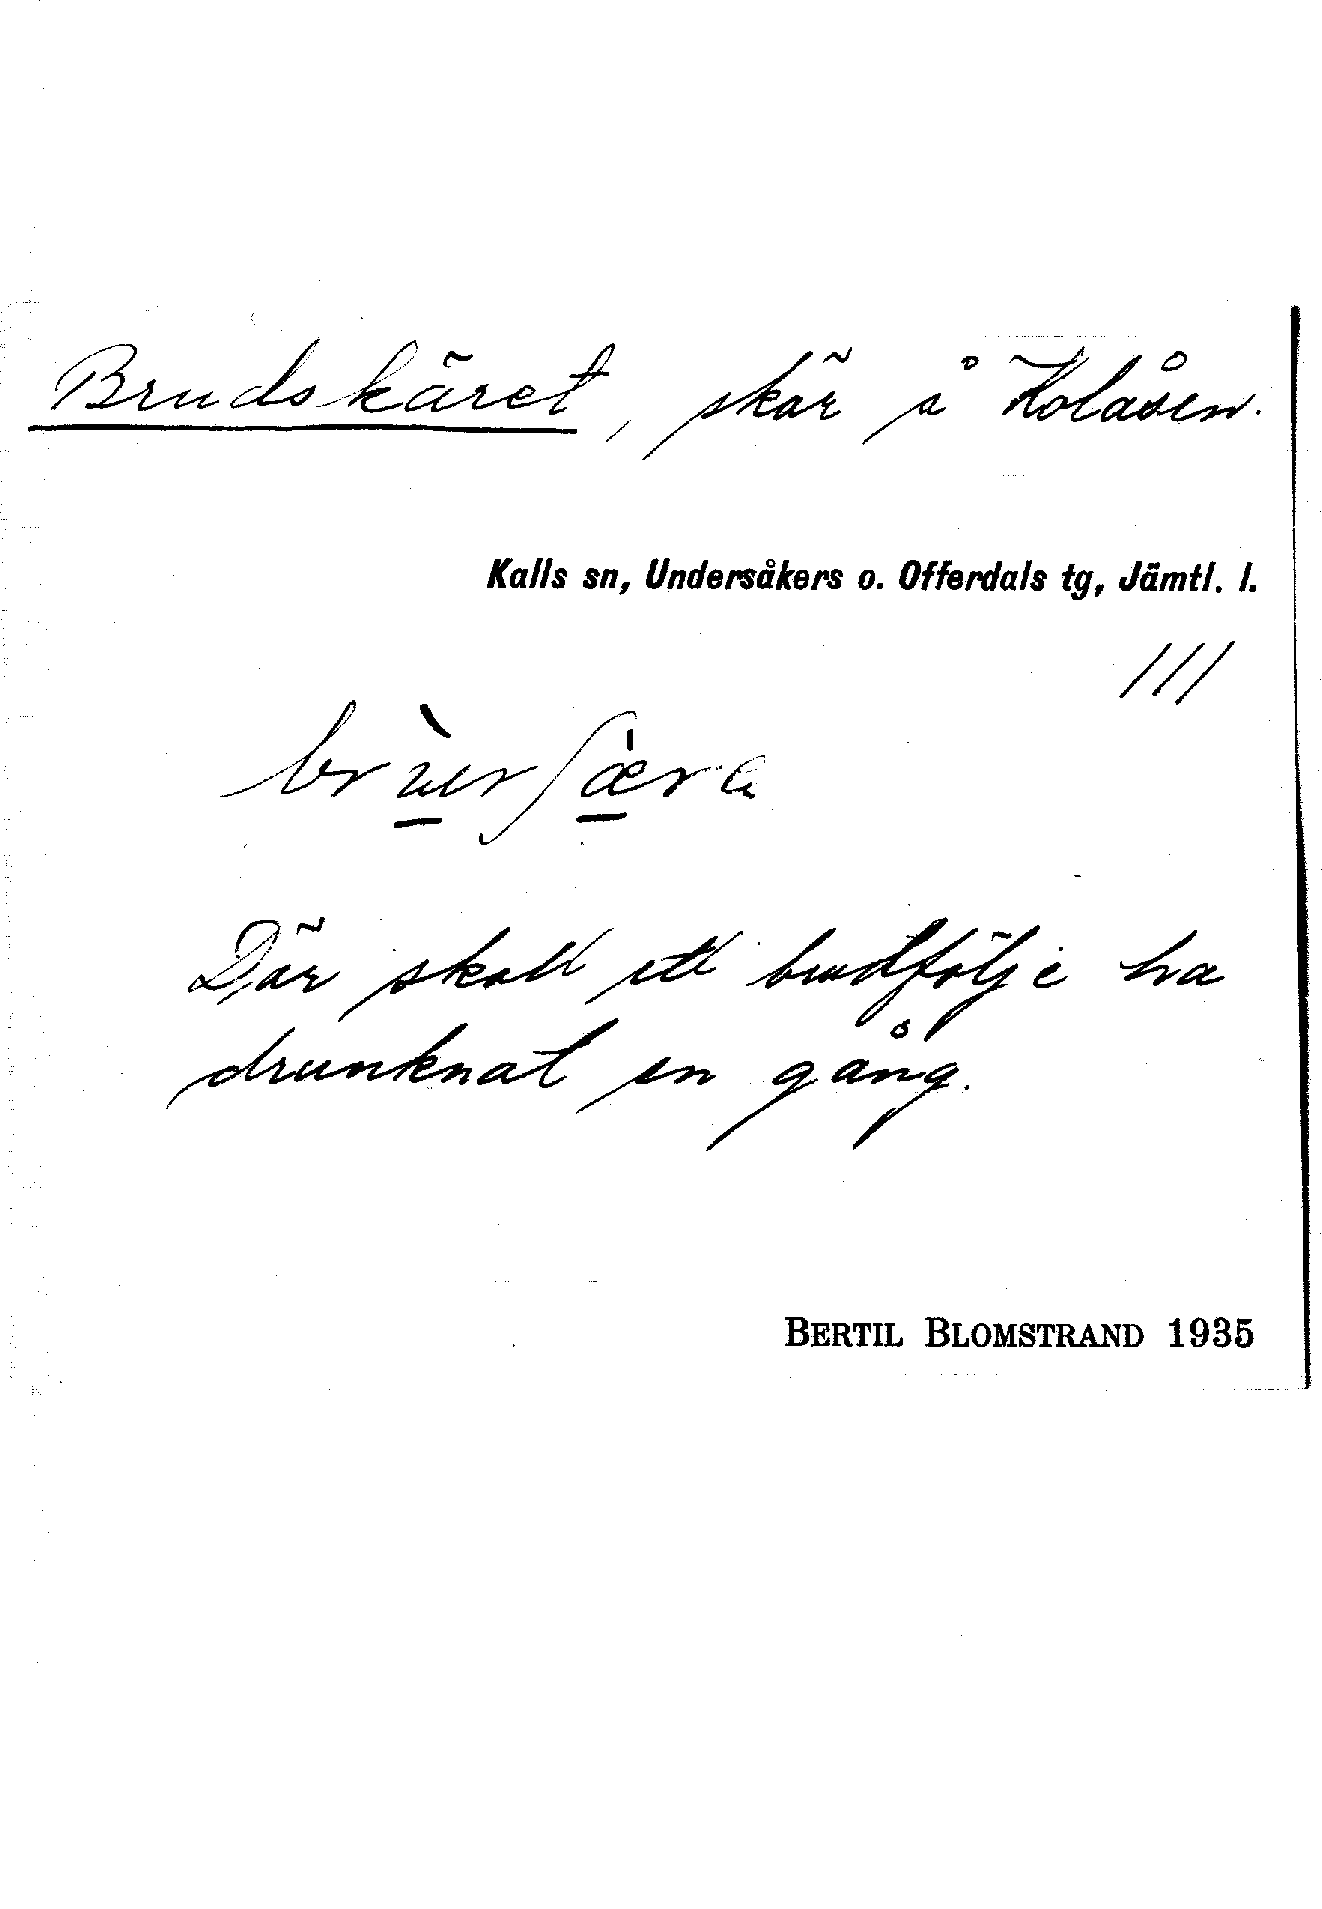 Brudskäret, skär å Kolåsen.
Kalls sn, Undersåkers o. Offerdals tg, Jämtl. l.
///
Där skall ett brudfölje ha
drunknat en gång.
BERTIL BLOMSTRAND 1935